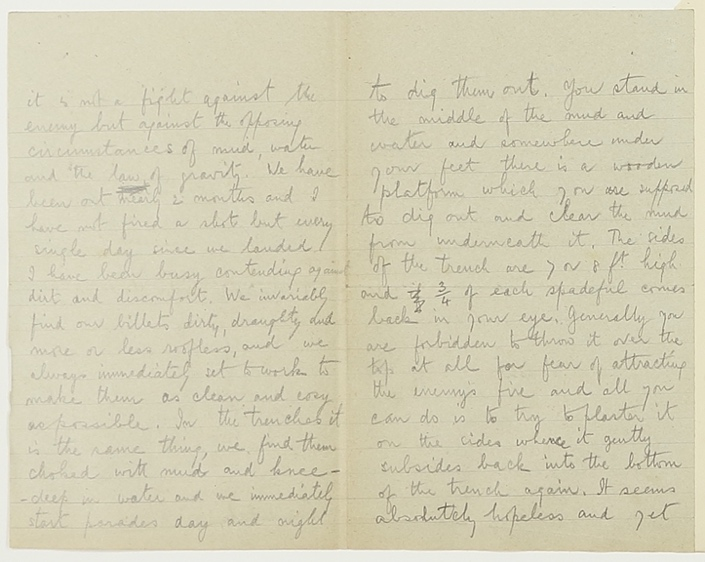 it is not a fight against the
enemy but against the opposing
circumstances of mud, water
and the law of gravity. We have
been out nearly 2 months and I
have not fired a shot but every
single day since we landed
I have been busy contending against
dirt and discomfort. We invariably
find our billets dirty, draughty and
more or less roofless, and we
always immediately set to work to
make them as clean and cosy
as possible. In the trenches it
is the same thing, we find them
choked with mud and knee-
-deep in water and we immediately
start parades day and night
to dig them out. You stand in
the middle of the mud and
water and somewhere under
your feet there is a wooden
platform which you are supposed
to dig out and clear the mud
from underneath it. The sides
of the trench are 7 or 8 ft high
and 3/4 of each spadeful comes
back in your eye. Generally you
are forbidden to throw it over the
top at all for fear of attracting
the enemy's fire and all you
can do is to try to plaster it
on the sides where it gently
subsides back into the bottom
of the trench again. It seems
absolutely hopeless and yet